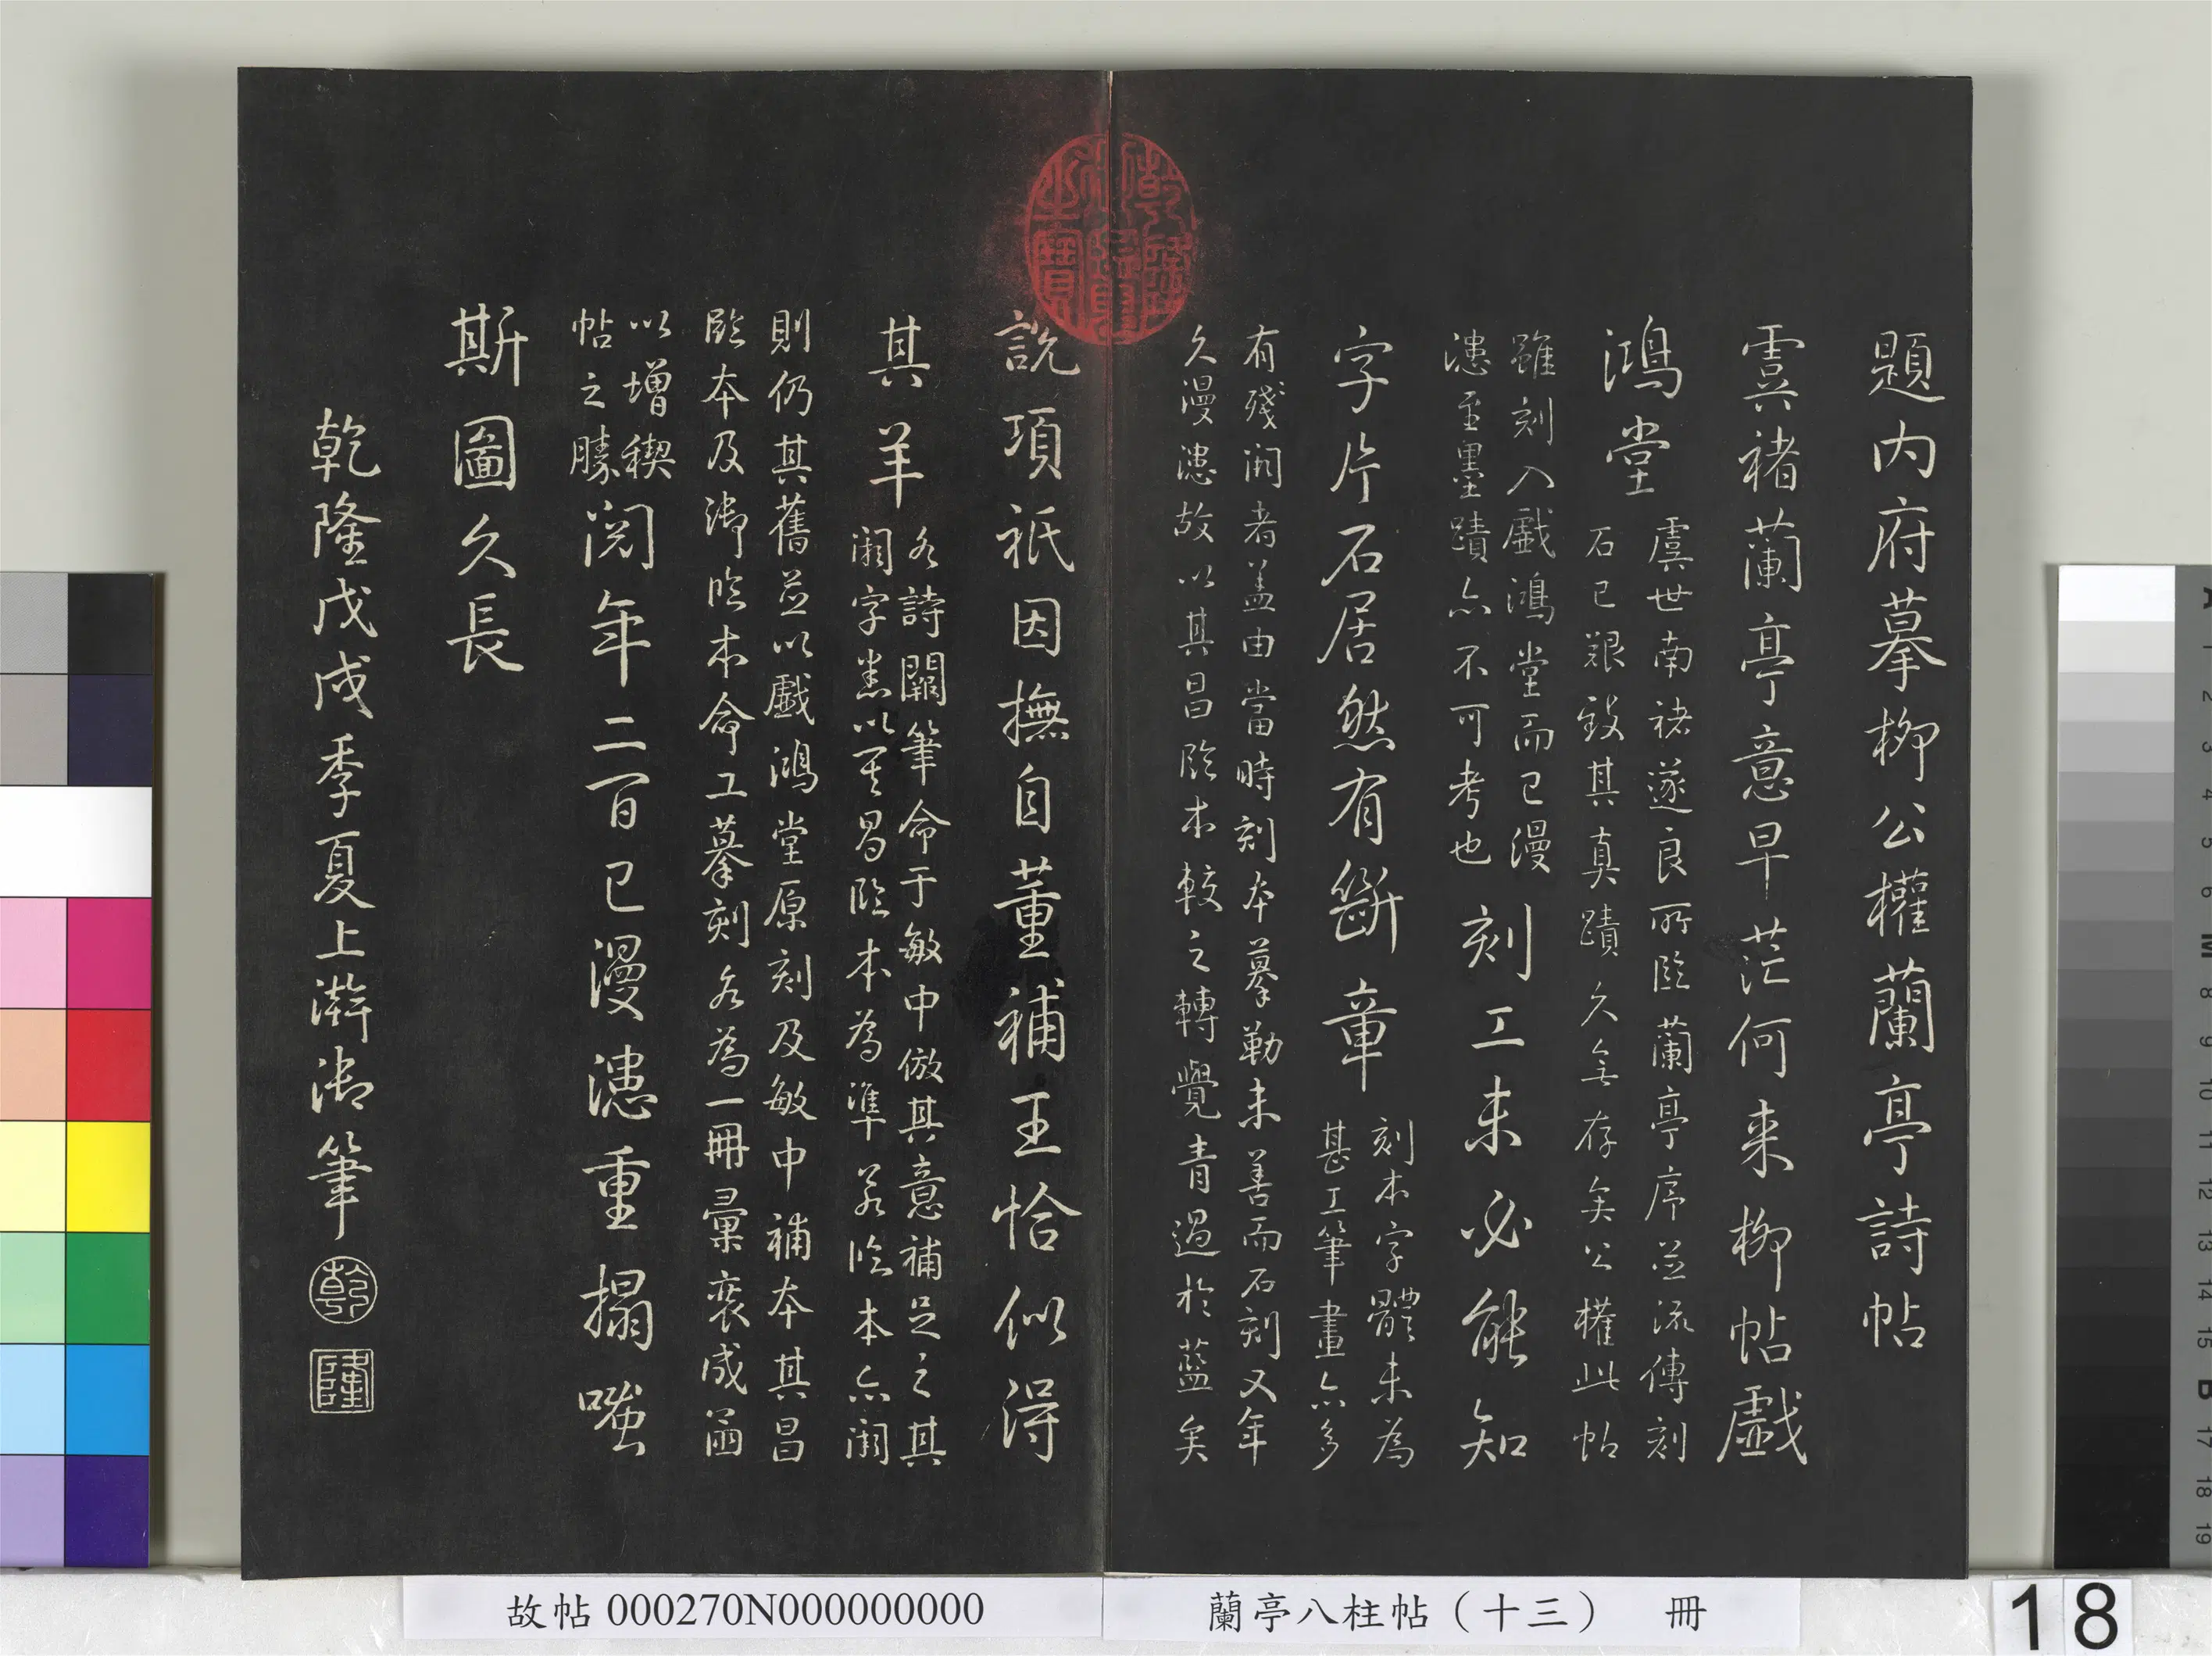 題內府摹柳公權蘭亭詩帖
虞褚蘭亭意早茫何来柳帖戲
鴻堂
虞世南褚遂良所臨蘭亭序並流傳刻
石已艱致其真蹟久無存矣公權此帖
雖刻入戲鴻堂而已漫
漶至墨蹟亦不可考也
刻工未必能知
字片石居然有斷章
刻本字體未為
甚工筆畫亦多
有殘闕者盖由當時刻本摹勒未善而石刻又年
久漫漶故以其昌臨本較之轉覺青過於藍矣
說項祇因撫自董補王恰似得
其羊
各詩闕筆命于敏中倣其意補足之其
闕字悉以其昌臨本為準若臨本亦闕
則仍其舊並以戲鴻堂原刻及敏中補本其昌
臨本及御臨本命工摹刻各為一冊彙裘成函
以增禊
帖之勝
閱年二百已漫漶重搨嗤
斯圖久長
乾隆戊戌季夏上澣御筆
乾
隆
故帖 000270N000000000
蘭亭八柱帖（十三） 冊
18